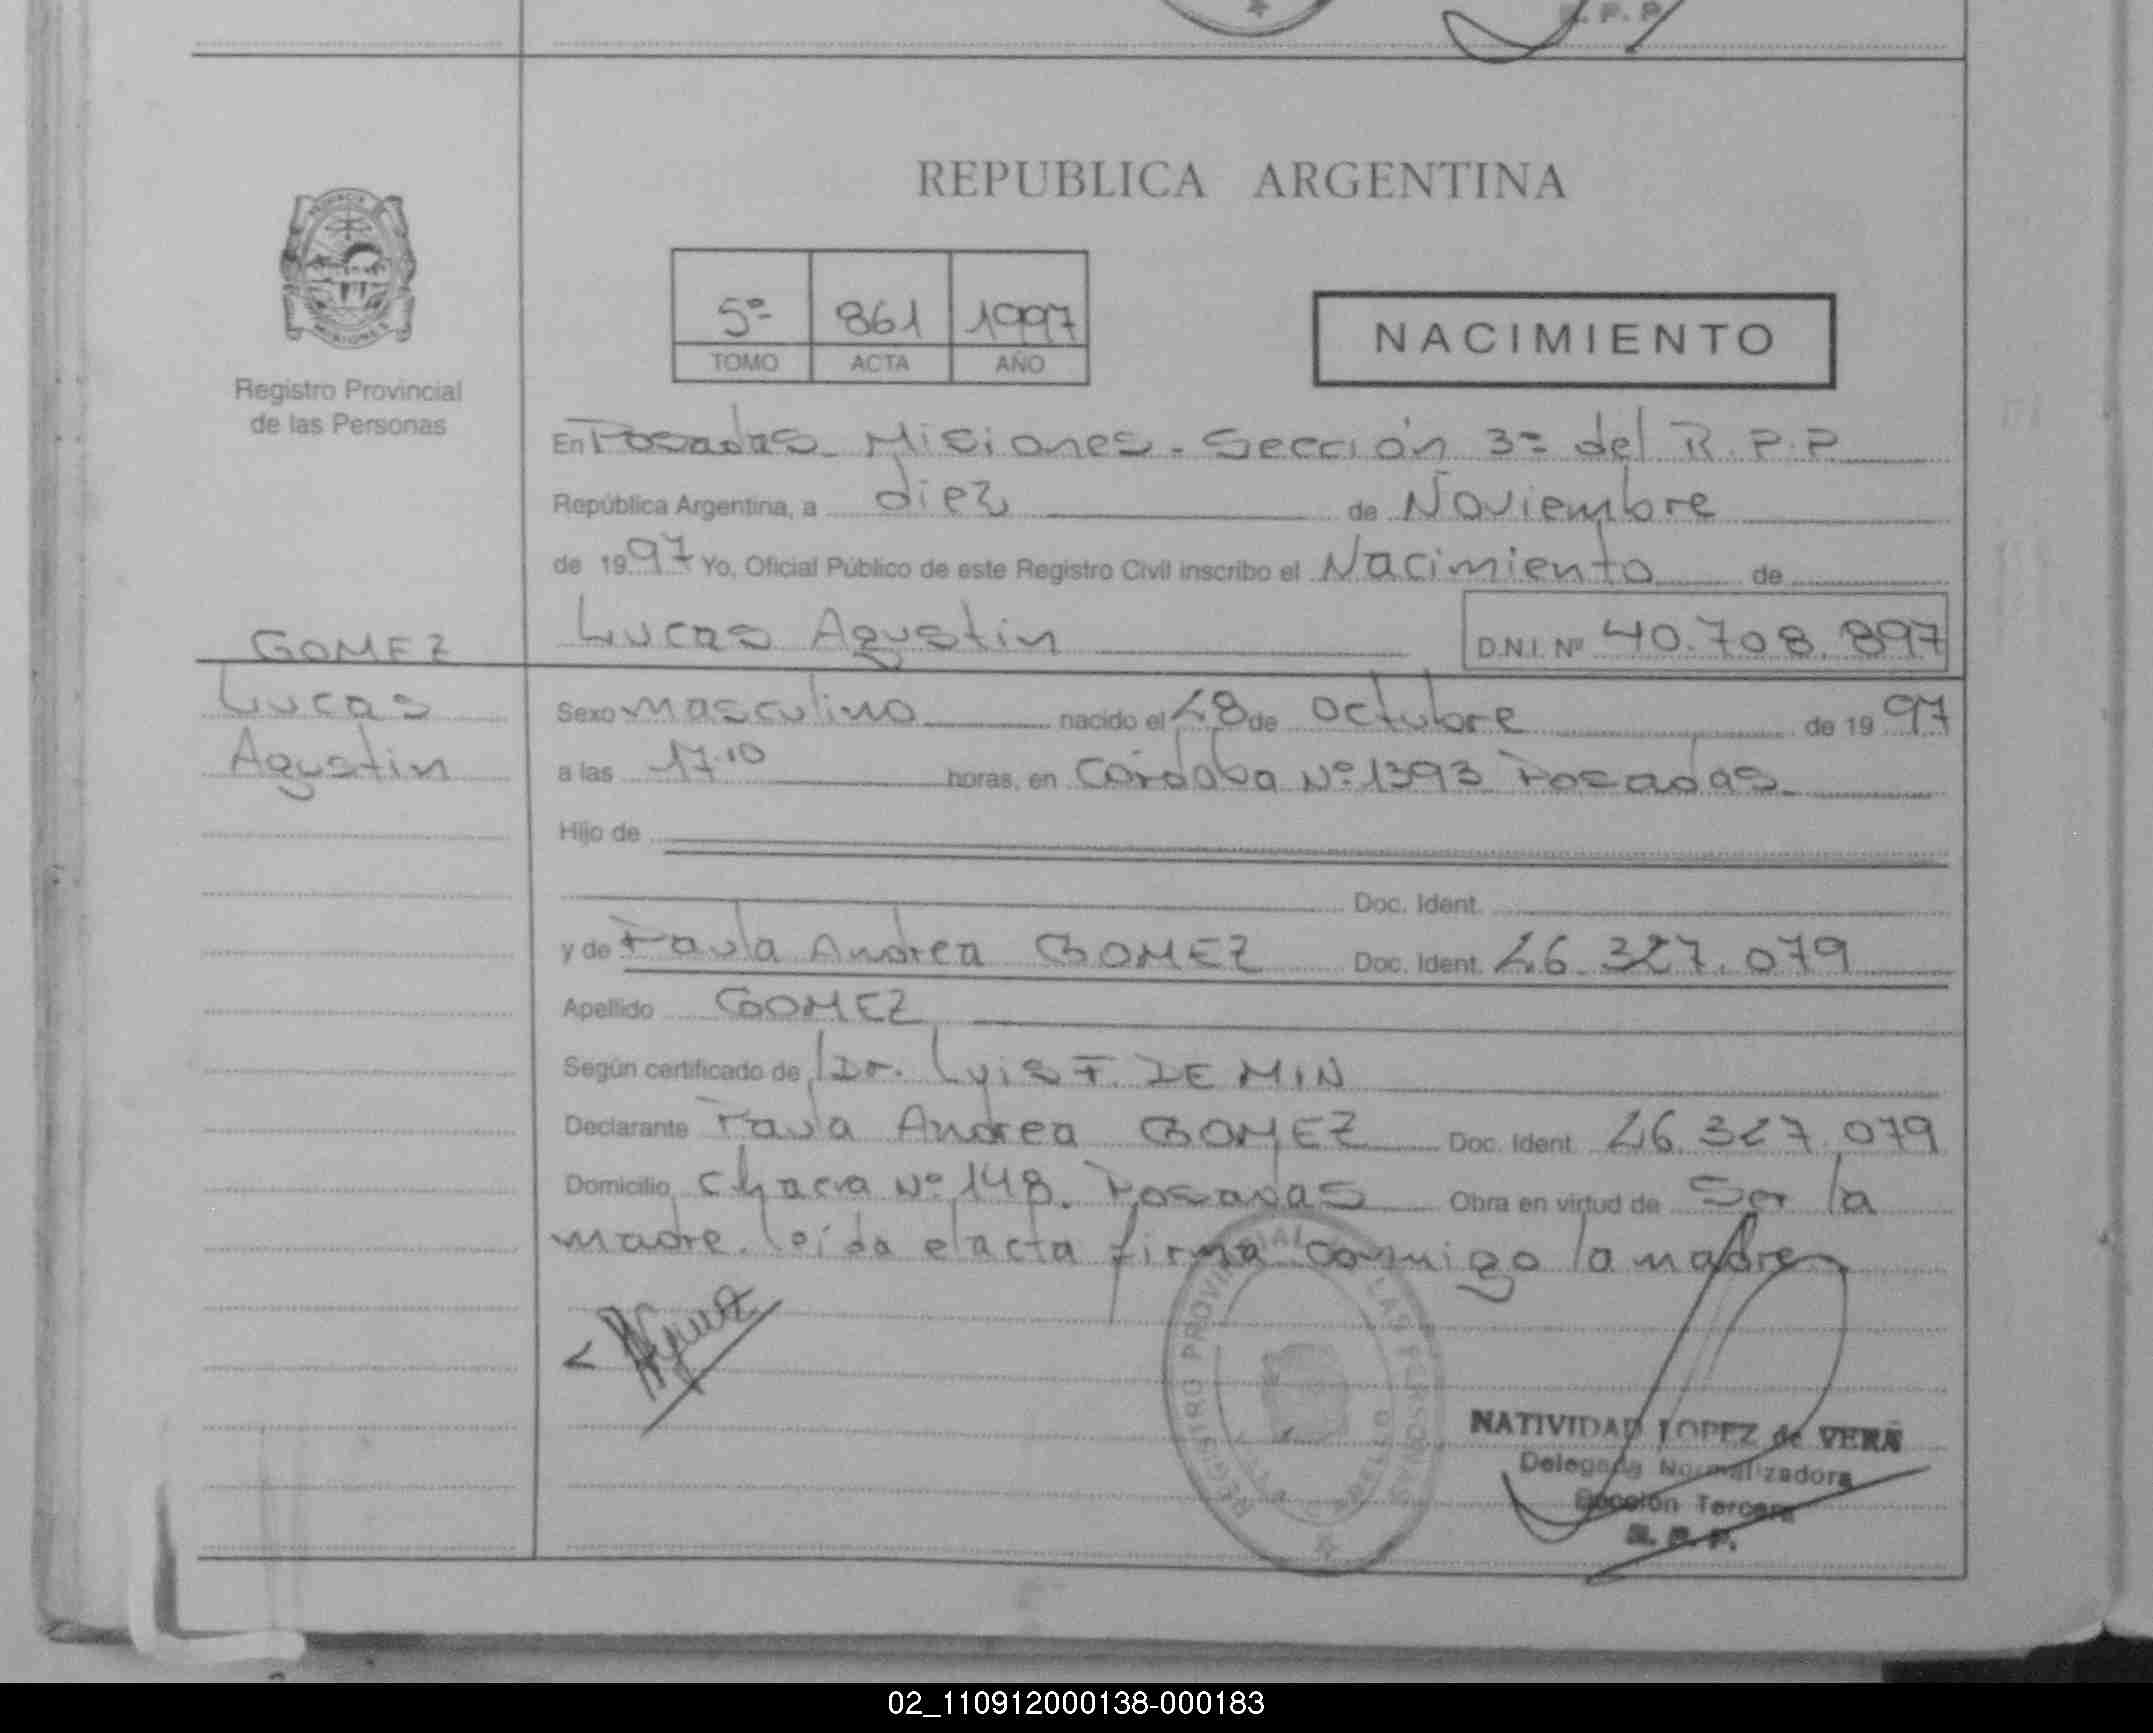 R. P. P.
REPUBLICA ARGENTINA
5º 861 1997
TOMO ACTA AÑO
NACIMIENTO
Registro Provincial
de las Personas
En Posadas Misiones. Sección 3º del R.P.P
República Argentina, a diez de Noviembre
de 1997 Yo, Oficial Público de este Registro Civil inscribo el Nacimiento de
Lucas Agustin D.N.I. Nº 40.708.897
GOMEZ
Lucas
Agustin
Sexo masculino nacido el 28 de octubre de 1997
a las 17.10 horas, en Córdoba Nº 1393 Posadas
Hijo de
Doc. Ident.
y de Paula Andrea GOMEZ Doc. Ident. 26.327.079
Apellido GOMEZ
Según certificado de Dr. Luis F. DE MIN
Declarante Paula Andrea GOMEZ Doc. Ident. 26.327.079
Domicilio chacra Nº 148. Posadas Obra en virtud de Ser la
madre. leída el acta firma conmigo la madre
REGISTRO PROVINCIAL LAS PERSONAS
NATIVIDAD LOPEZ de VERA
Delegada Normalizadora
Sección Tercera
R. P. P.
02_110912000138-000183